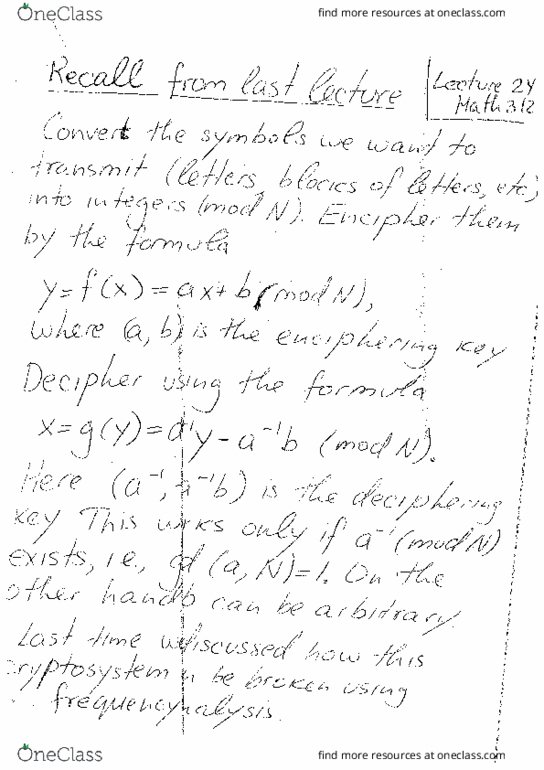 OneClass find more resources at oneclass.com
Recall from last lecture
Lecture 24
Math 312
Convert the symbols we want to
transmit (letters, blocks of letters, etc)
into integers (mod N). Encipher them
by the formula
y = f(x) = ax + b (mod N),
where (a, b) is the enciphering key
Decipher using the formula
x = g(y) = a⁻¹y - a⁻¹b (mod N).
Here (a⁻¹, a⁻¹b) is the deciphering
key This works only if a⁻¹ (mod N)
exists, i.e., gd (a, N) = 1. On the
other hand b can be arbitrary.
Last time discussed how this
ryptosystem be broken using
frequency nalysis.
OneClass find more resources at oneclass.com